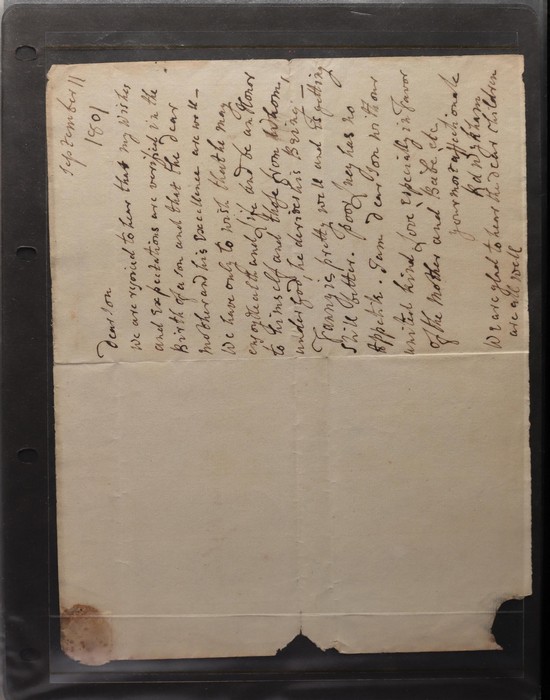 September 11
1801
Dear Son
We are rejoiced to hear that my wishes
and Expectations are verified in the
Birth of a son and that the dear
mother and his Excellence are well —
We have only to wish that he may
enjoy health and life and be an Honor
to himself and those from whom,
under God, he derives his Being —
Fanny is pretty well and is getting
still better. poor has no
Appetite. I am dear son with our
united kind Love especially in favor
of the Mother and Babe &c
your most affectionate
We are glad to hear the dear children
are all well